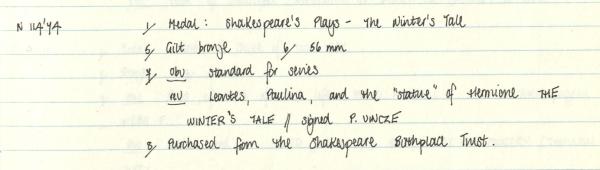 N 114'74 1/ Medal: Shakespeare's Plays - The Winter's Tale
5/ Gilt bronze 6/ 56 mm
7/ obv standard for series
rev Leontes, Paulina, and the "statue" of Hermione THE
WINTER'S TALE // signed P. VINCZE
8/ Purchased from the Shakespeare Birthplace Trust.